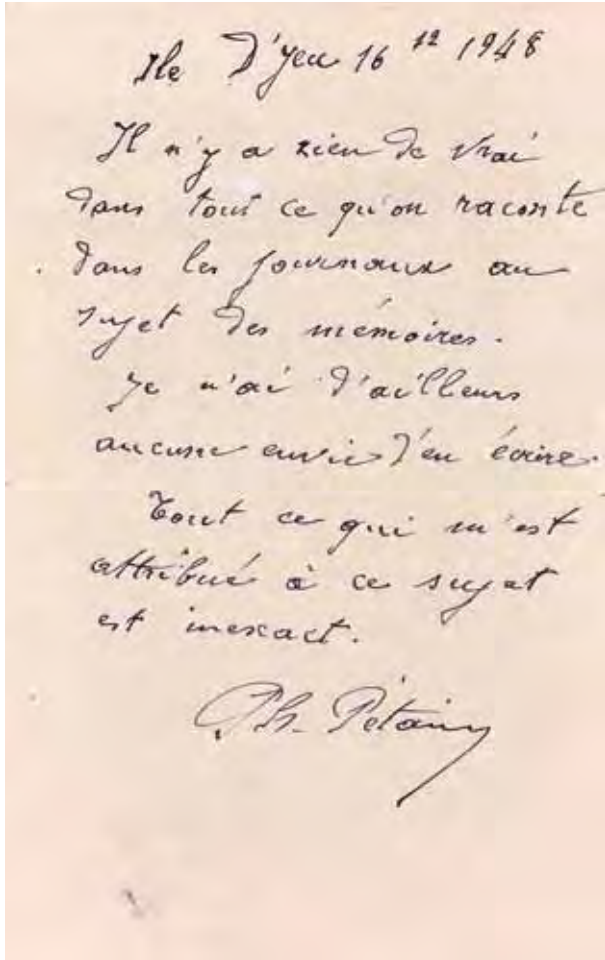 Ile D'Yeu 16 12 1948
Il n'y a rien de vrai
dans tout ce qu'on raconte
dans les journaux au
sujet des mémoires.
Je n'ai d'ailleurs
aucune envie d'en écrire.
Tout ce qui m'est
attribué à ce sujet
est inexact.
Ph. Pétain